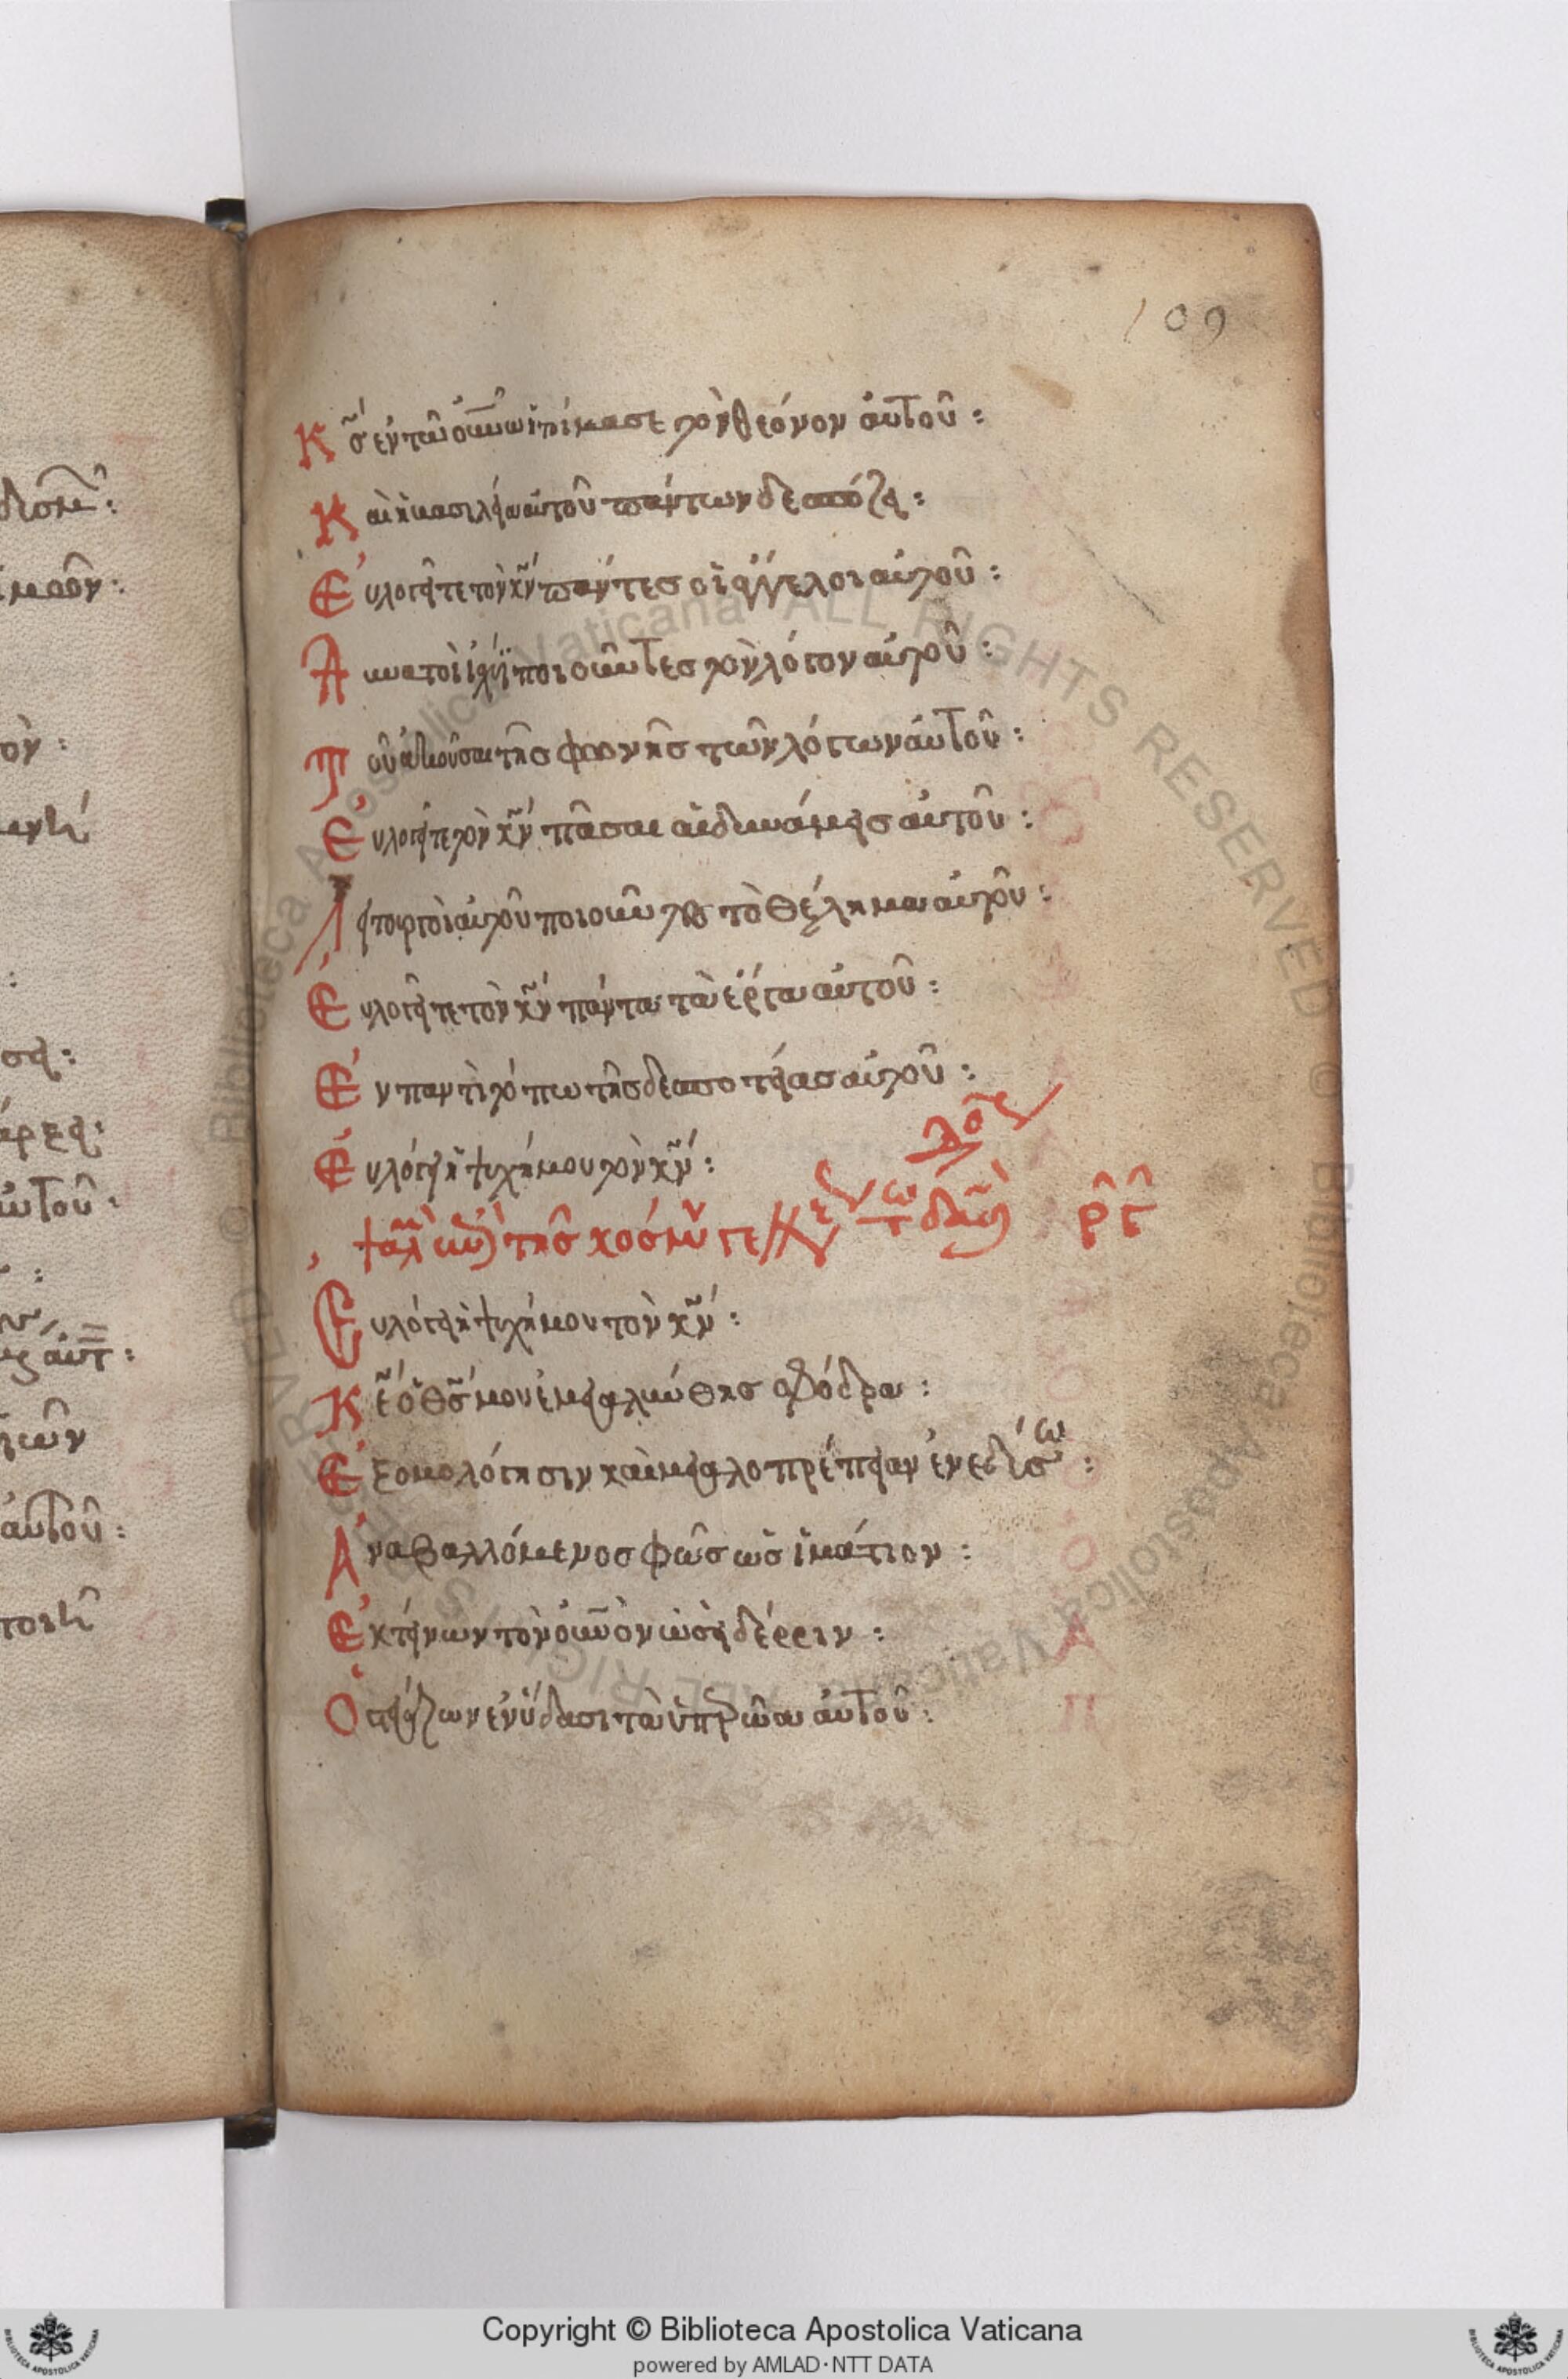 109
Κς ἐν τῶ οὐνω ἡτοίμασε τὸν θρόνον αὐτοῦ :
Καὶ ἡ βασιλεία αὐτοῦ πάντων δεσπόζει :
Εὐλογεῖτε τὸν κν πάντες οἱ ἄγγελοι αὐτοῦ :
ποιοῦντες τὸν λόγον αὐτοῦ :
Τοῦ ἀκοῦσαι τῆς φωνῆς τῶν λόγων αὐτοῦ :
Εὐλογεῖτε τὸν κν πᾶσαι αἱ δυνάμεις αὐτοῦ :
Λειτουργοὶ αὐτοῦ ποιοῦντες τὸ θέλημα αὐτοῦ :
Εὐλογεῖτε τὸν κν πάντα τὰ ἔργα αὐτοῦ :
Ἐν παντὶ τόπω τῆς δεσποτείας αὐτοῦ :
Εὐλόγει ἡ ψυχή μου τὸν κν :
ργ
Εὐλόγει ἡ ψυχή μου τὸν κν :
Κε ὁ θς μου ἐμεγαλύνθης σφόδρα :
Ἐξομολόγησιν καὶ μεγαλοπρέπειαν ἐνεδύσω :
Ἀναβαλλόμενος φῶς ὡς ἱμάτιον :
Ἐκτείνων τὸν οὐνὸν ὡσεὶ δέρριν :
Ὁ στεγάζων ἐν ὕδασι τὰ ὑπερῶα αὐτοῦ :
Copyright © Biblioteca Apostolica Vaticana
powered by AMLAD・NTT DATA